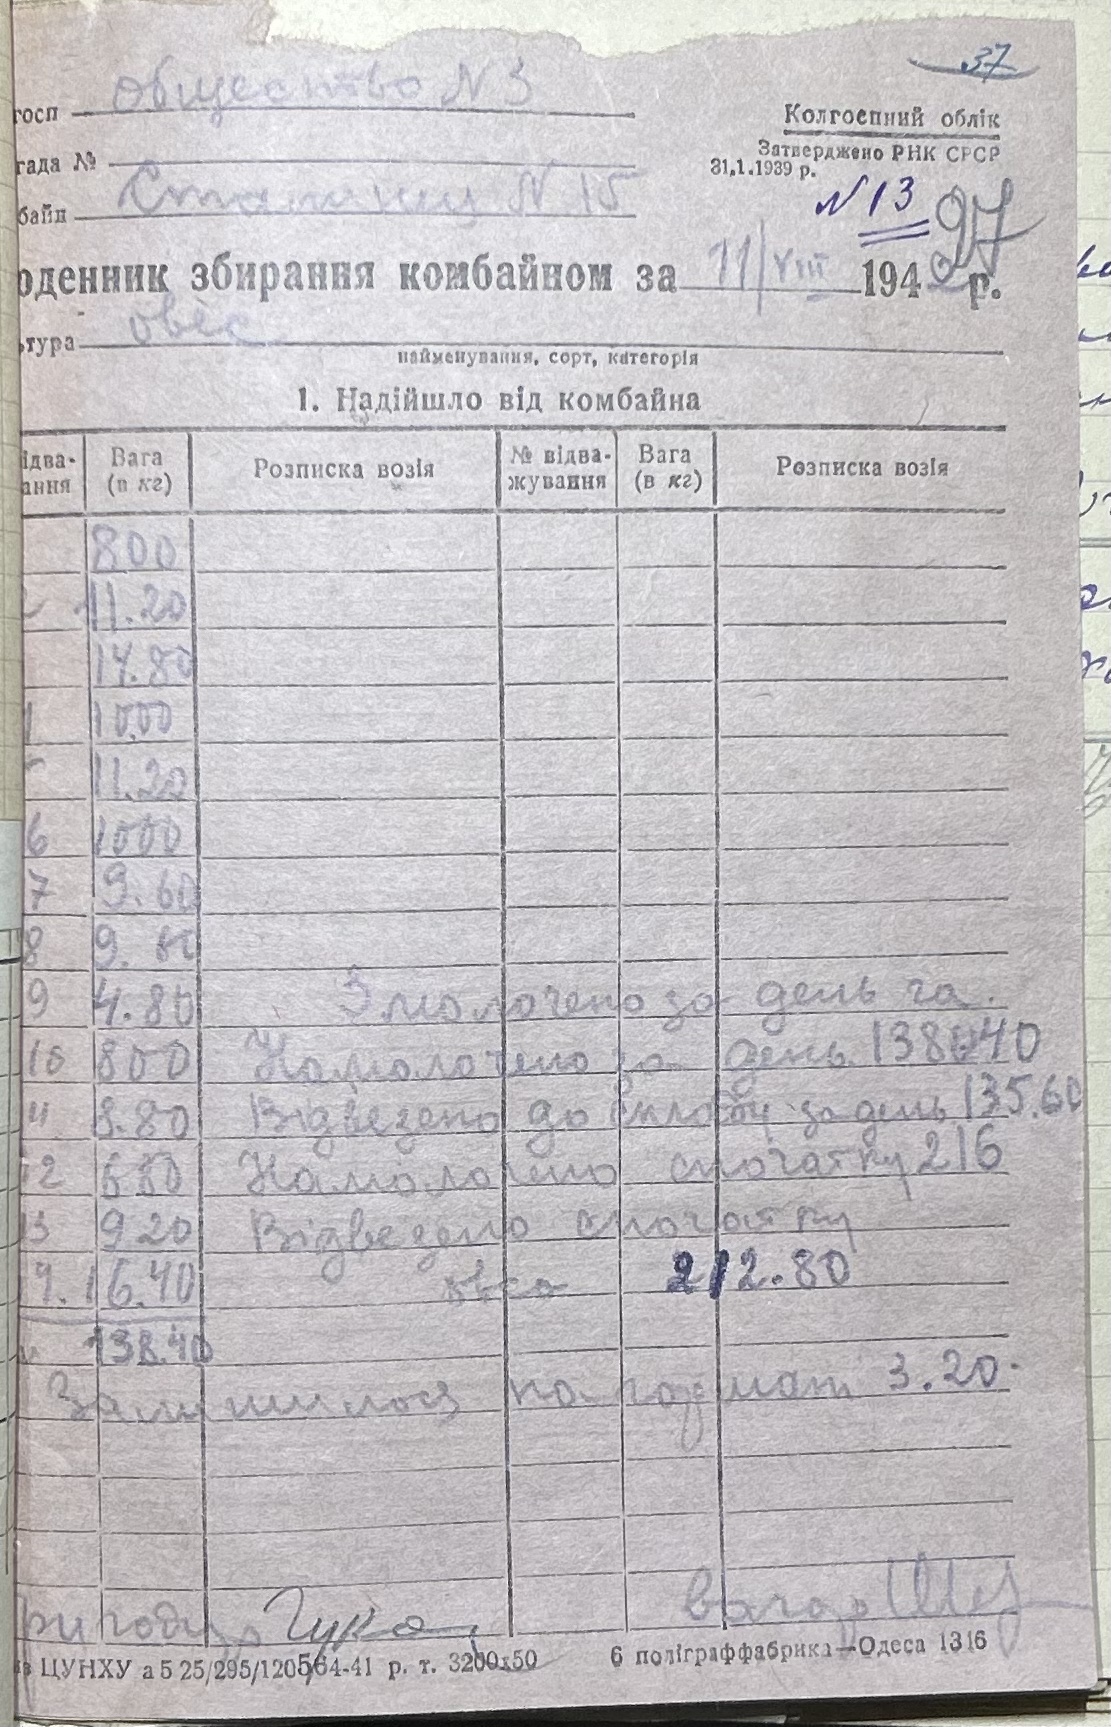 37
госп общество N 3
Колгоспний облік
гада №
Затверджено РНК СРСР
31.1.1939 р.
байн Сталинец N 15
N 13
97
оденник збирання комбайном за 11/VIII 194 р.
ьтура овёс
найменування, сорт, категорія
1. Надійшло від комбайна
ідва-
ання
Вага
(в кг)
Розписка возія
№ відва-
жування
Вага
(в кг)
Розписка возія
800
2 11.20
14.80
1000
11.20
6 1000
7 9.60
8 9.
9 4.80 Змолочено за день га.
10 800 Намолочено за день 138.40
11 8.80 Відвезено до за день 135.60
12 6.80 Намолочено спочатку 216
13 920 Відвезено спочатку
14. 16.40 овса 212.80
138.40
Залишилось на 3.20.
вагар
ЦУНХУ а 5 25/295/120564-41 р. т. 3200х50
6 поліграффабрика—Одеса 1316